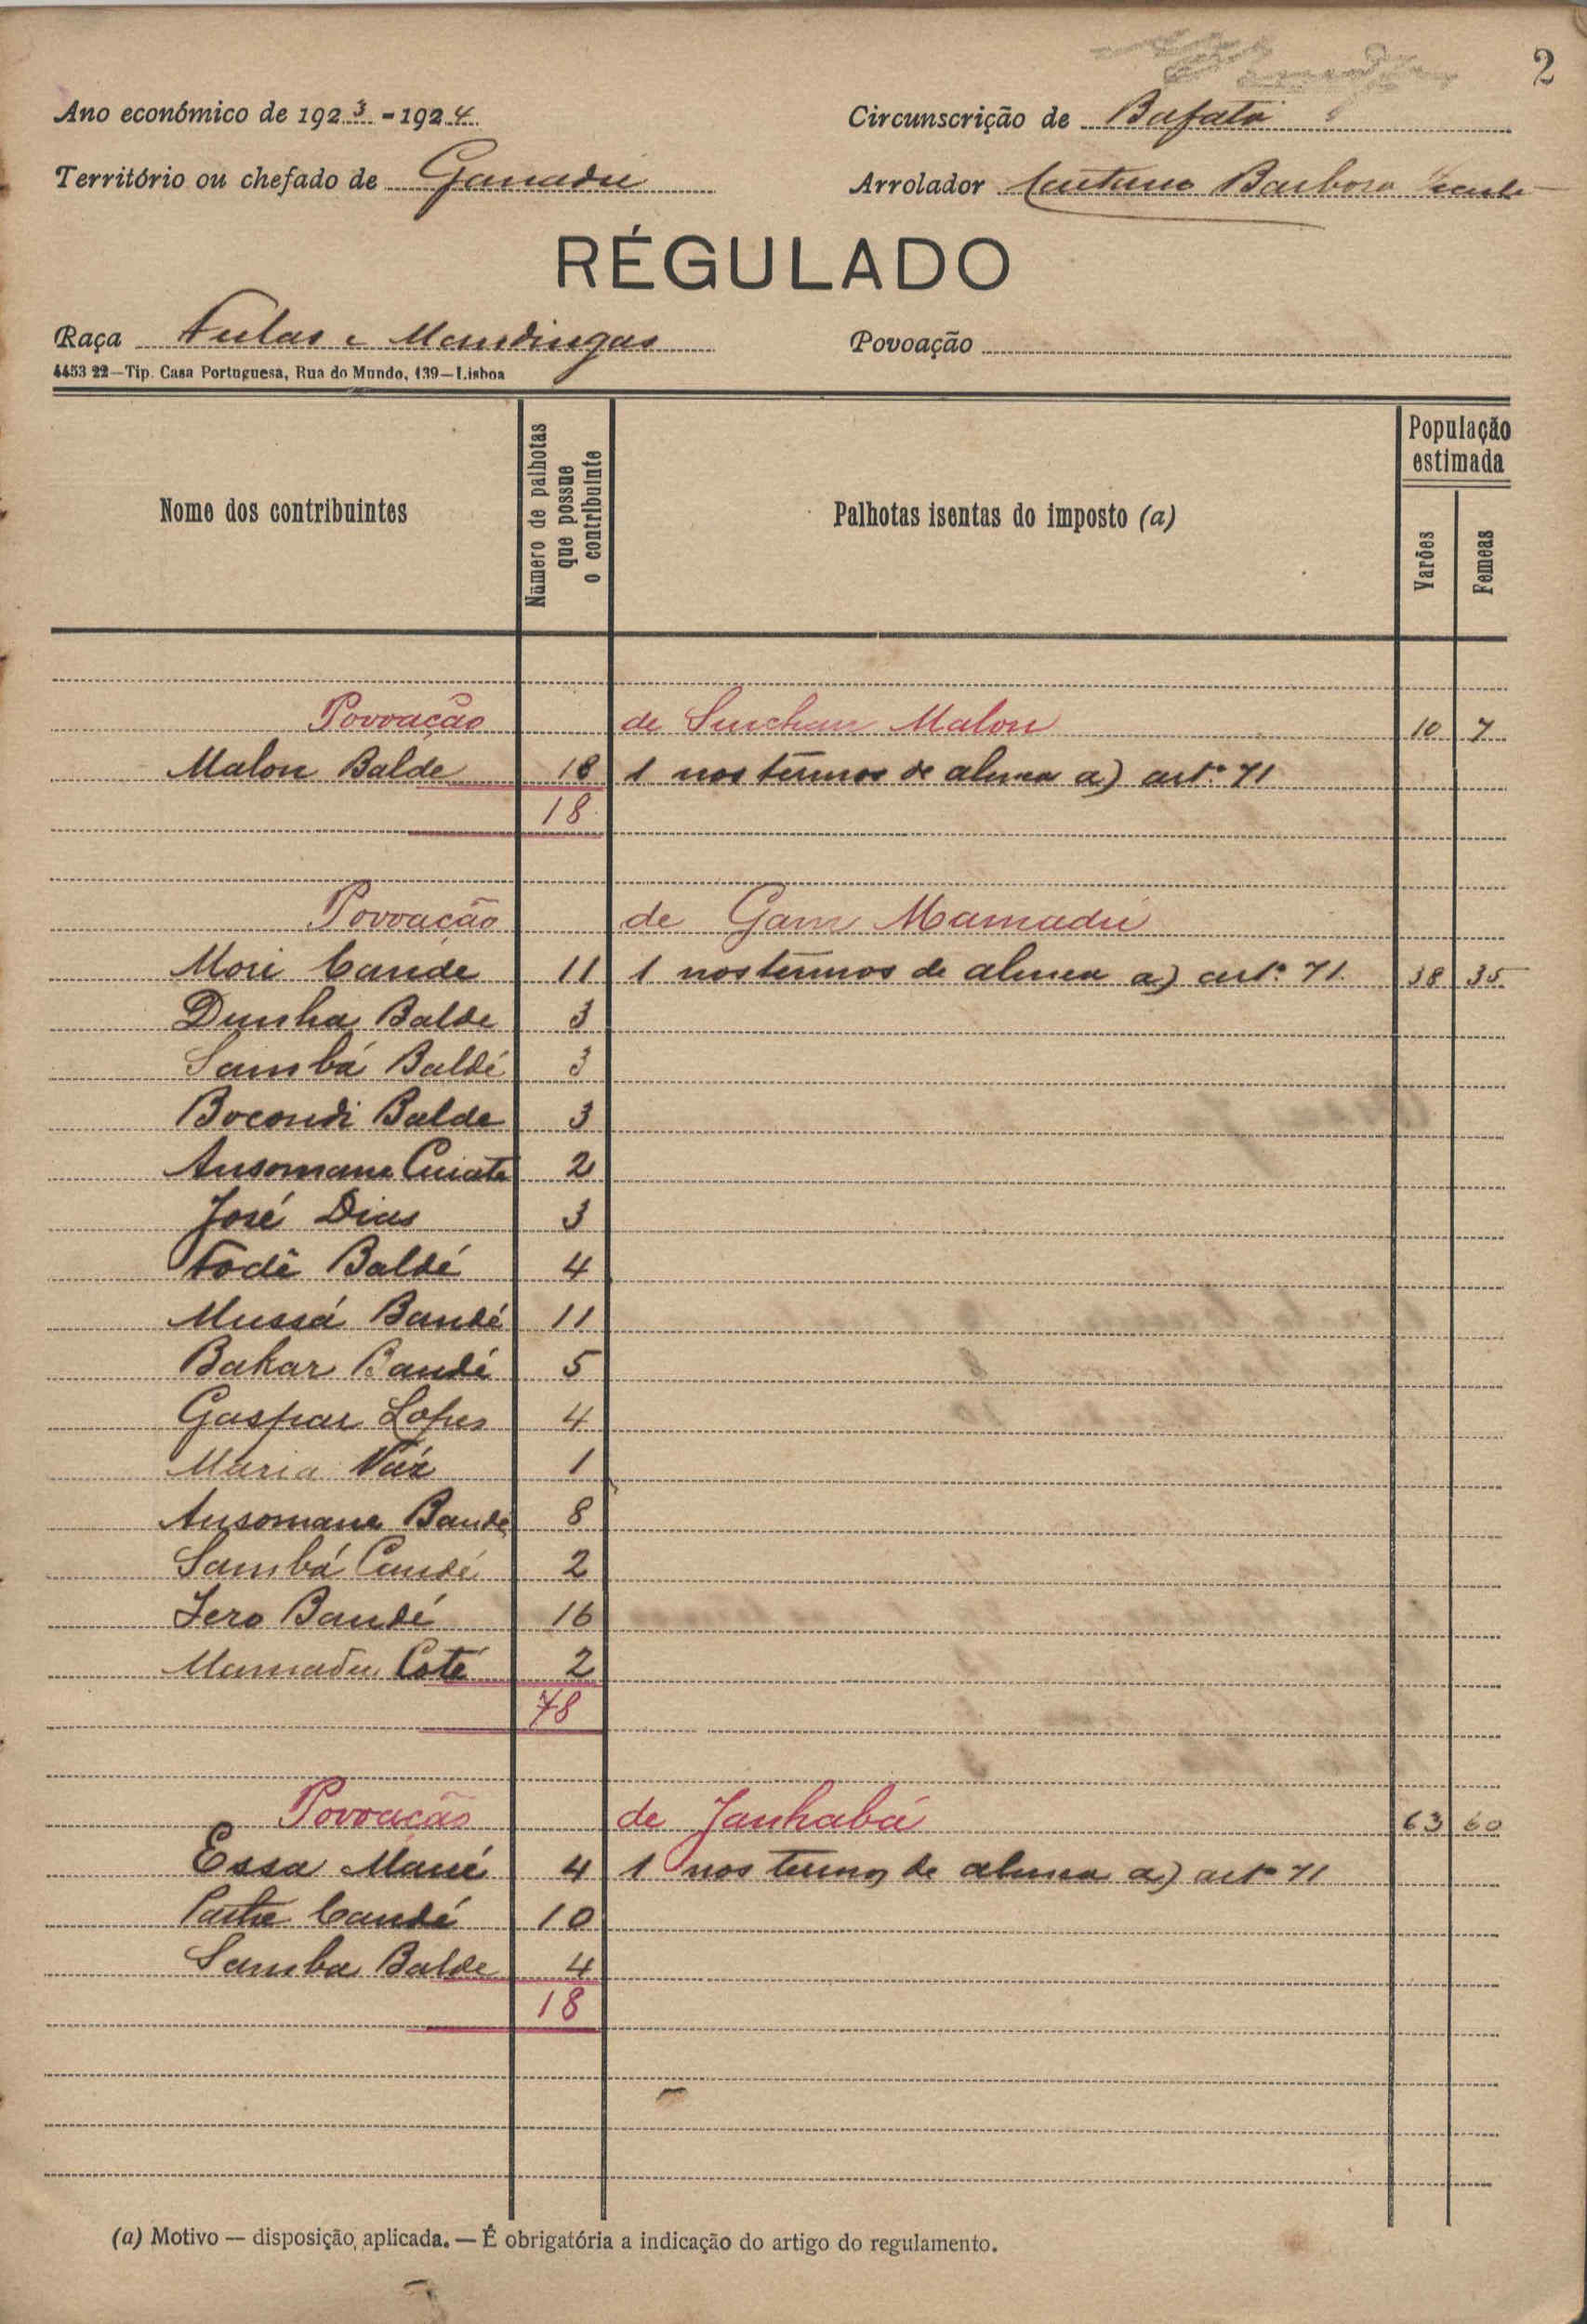 2
Ano económico de 1923-1924
Circunscrição de Bafatá
Território ou chefado de Ganadu
Arrolador Caetano Barbosa
RÉGULADO
Raça Fulas e Mandingas
Povoação
4453 22—Tip. Casa Portuguesa, Rua do Mundo, 139—Lisboa
Nome dos contribuintes
Número de palhotas que possue o contribuinte
Palhotas isentas do imposto (a)
População estimada
Varões
Femeas
Povoação de Sinchan Malon 10 7
Malon Balde 18 1 nos termos de alinea a) art.º 71
18
Povoação de Gam Mamadú
Mori Cande 11 1 nos termos de alinea a) art.º 71 38 35
Dunha Balde 3
Sambá Baldé 3
Bocondi Balde 3
Ansomane Cuiate 2
José Dias 3
Fodê Baldé 4
Mussá Bandé 11
Bakar Bandé 5
Gaspar Lopes 4
Maria Váz 1
Ansomane Bande 8
Sambá Candé 2
Jero Bandé 16
Mamadu Coté 2
78
Povoação de Janhabá 63 60
Essa Mané 4 1 nos termos de alinea a) art.º 71
Candé 10
Samba Balde 4
18
(a) Motivo — disposição aplicada. — É obrigatória a indicação do artigo do regulamento.